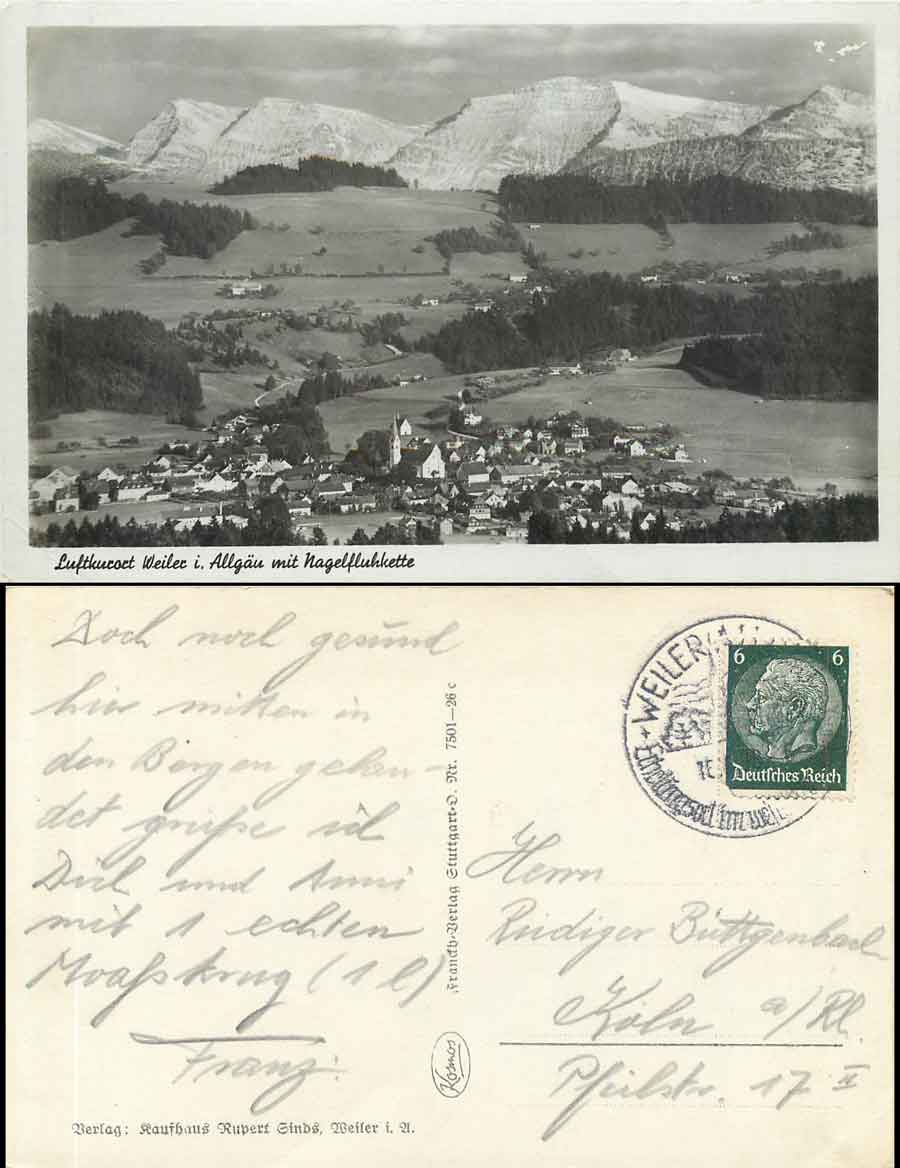 Luftkurort Weiler i. Allgäu mit Nagelfluhkette
Doch noch gesund
hier mitten in
den Bergen gelan-
det grüße ich
Dich und Anni
mit 1 echten
Moaßkrug (1 l)
Franz.
Verlag: Kaufhaus Rupert Sinds, Weiler i. A.
Franckh-Verlag Stuttgart-O. Nr. 7501—26 c
Kosmos
WEILER
Erholungsort im
6 6
Deutsches Reich
Herrn
Rüdiger Büttgenbach
Köln a/Rh.
Pfeilstr. 17 II